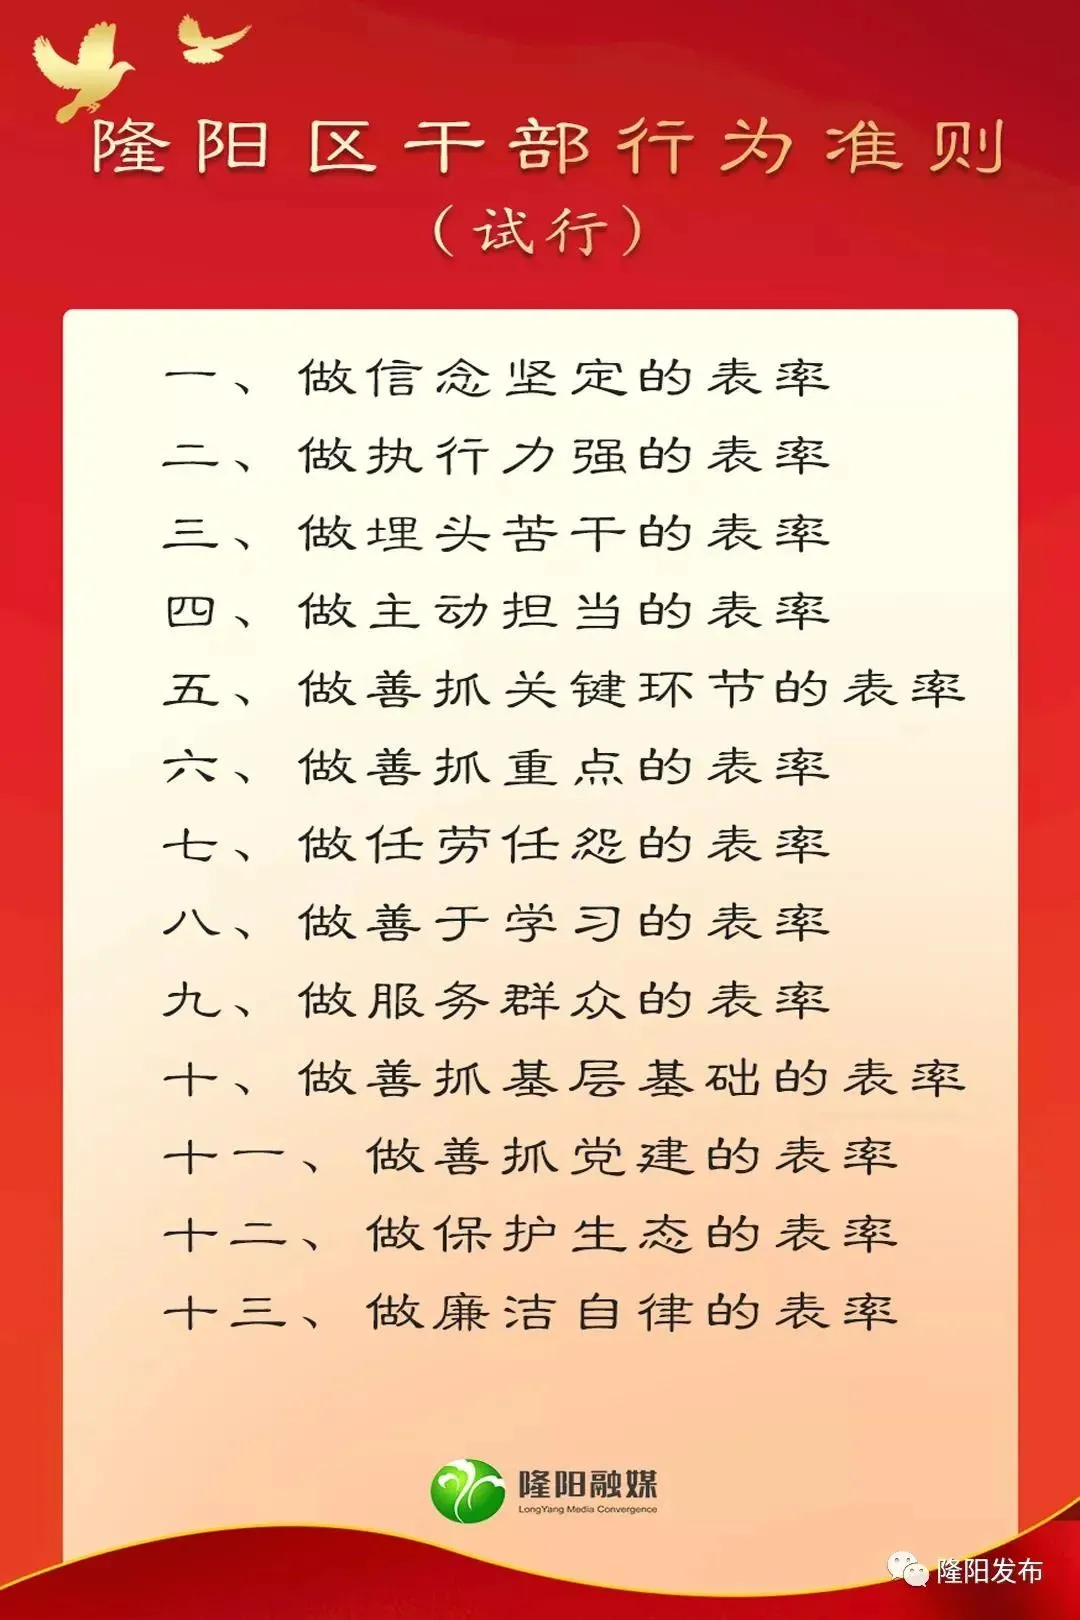 隆阳区干部行为准则
（试行）
一、做信念坚定的表率
二、做执行力强的表率
三、做埋头苦干的表率
四、做主动担当的表率
五、做善抓关键环节的表率
六、做善抓重点的表率
七、做任劳任怨的表率
八、做善于学习的表率
九、做服务群众的表率
十、做善抓基层基础的表率
十一、做善抓党建的表率
十二、做保护生态的表率
十三、做廉洁自律的表率
隆阳融媒
LongYang Media Convergence
隆阳发布